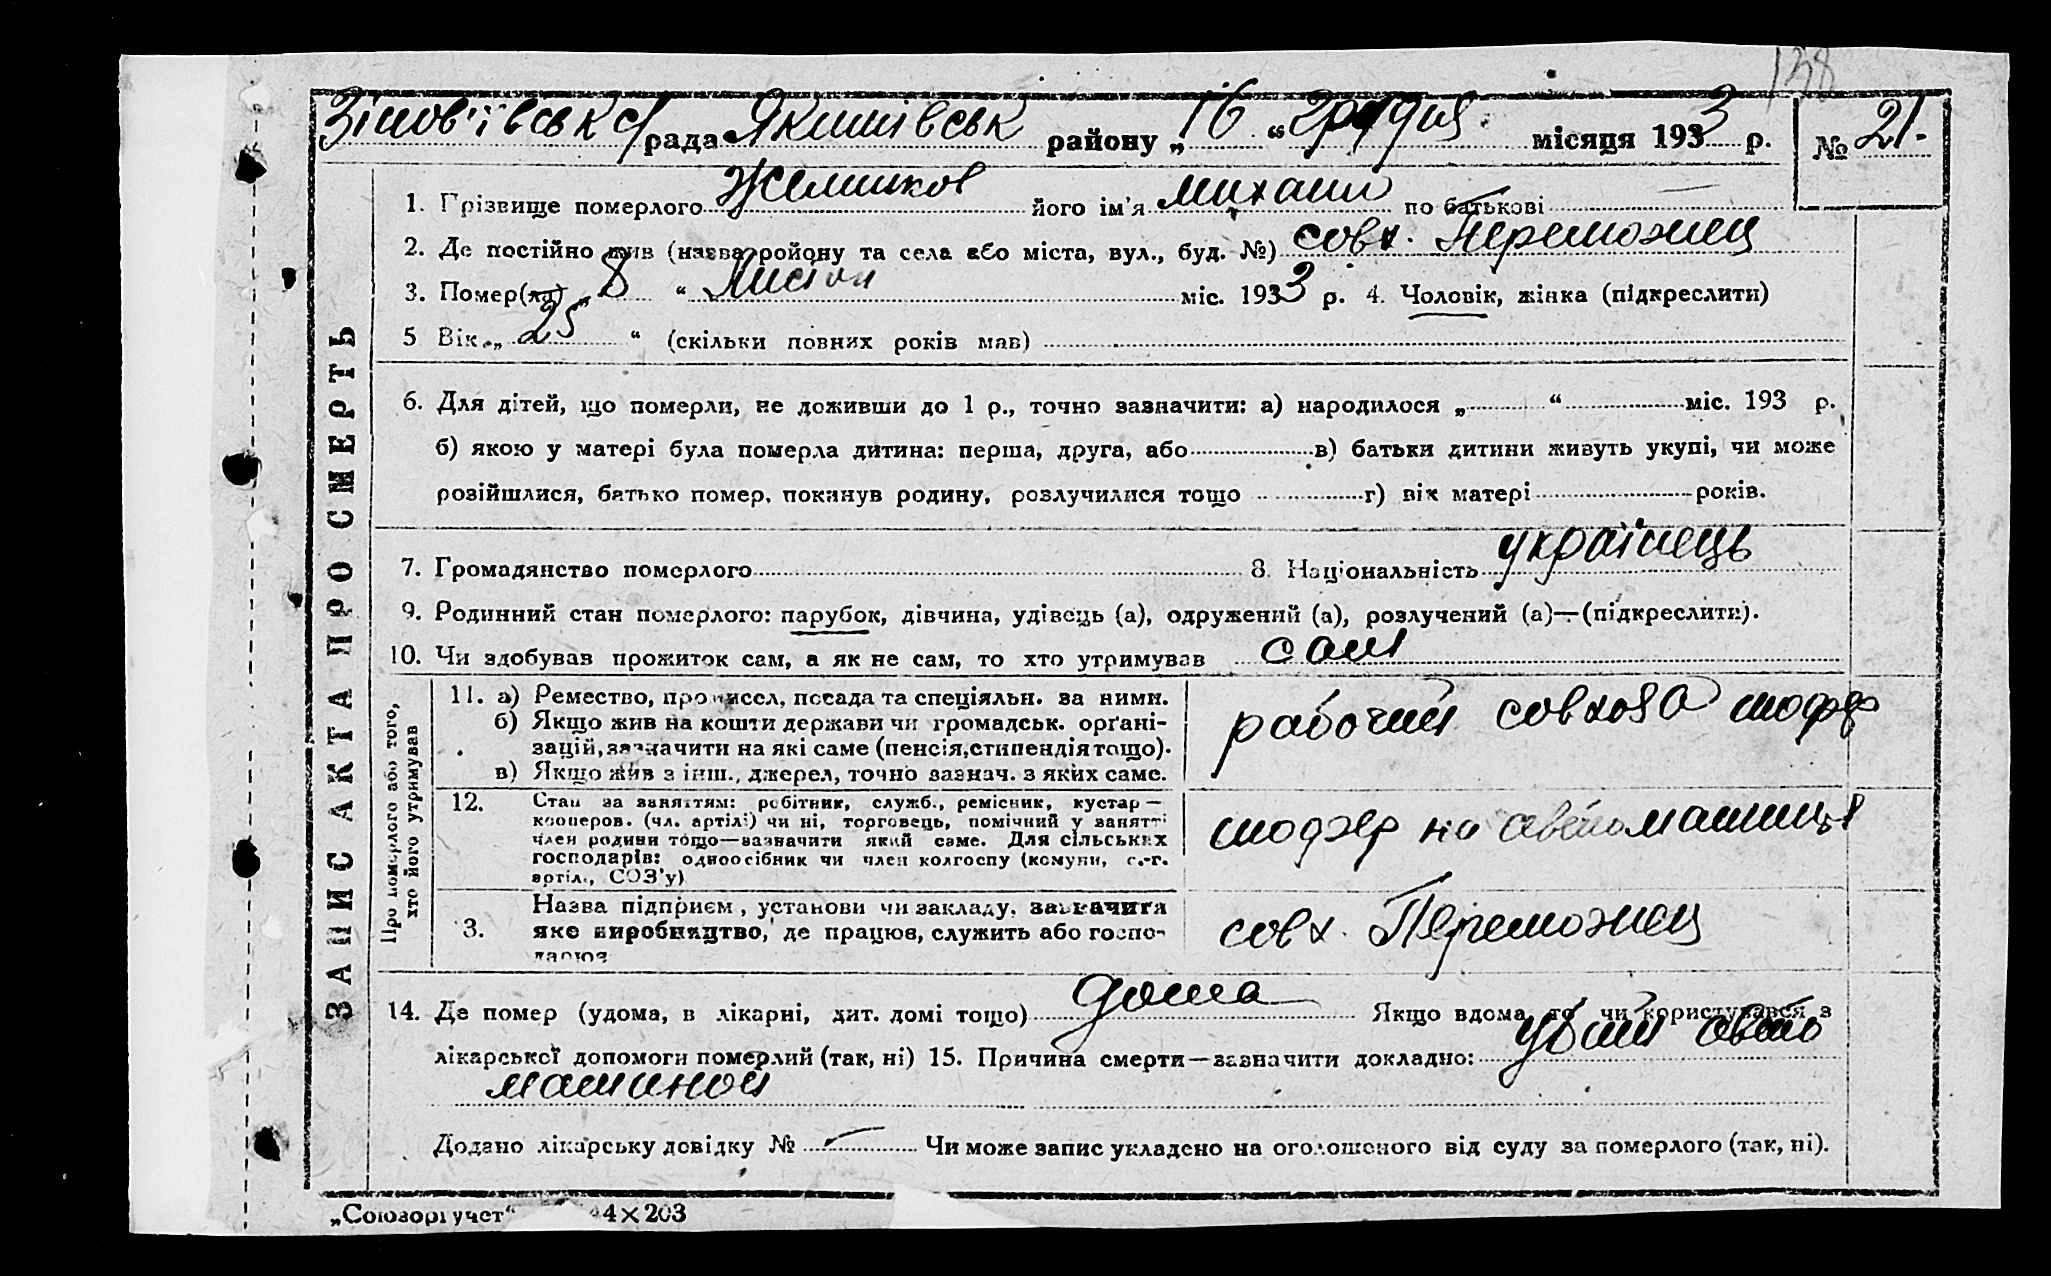 138
Зінов'ївськ с/рада Якимівськ району „16“ грудня місяця 1933 р. № 21.
ЗАПИС АКТА ПРО СМЕРТЬ
1. Прізвище померлого його ім'я Михаил по батькові —
2. Де постійно жив (назва ройону та села або міста, вул., буд. №) совх. Переможец
3. Помер(ла) „8“ міс. 1933 р. 4. Чоловік, жінка (підкреслити)
5 Вік „25“ (скільки повних років мав)
6. Для дітей, що померли, не доживши до 1 р., точно зазначити: а) народилося „ “ міс. 193 р.
б) якою у матері була померла дитина: перша, друга, або в) батьки дитини живуть укупі, чи може
розійшлися, батько помер, покинув родину, розлучилися тощо г) вік матері років.
7. Громадянство померлого 8. Національність українець
9. Родинний стан померлого: парубок, дівчина, удівець (а), одружений (а), розлучений (а)—(підкреслити).
10. Чи здобував прожиток сам, а як не сам, то хто утримував сам
Про померлого або того, хто його утримував
11. а) Ремество, промисел, посада та спеціяльн. за ними.
б) Якщо жив на кошти держави чи громадськ. орґані-
зацій, зазначити на які саме (пенсія, стипендія тощо).
в) Якщо жив з інш., джерел, точно зазнач. з яких саме.
рабочий совхоза шофер
12. Стан за заняттям: робітник, служб., ремісник, кустар—
кооперов. (чл. артілі) чи ні, торговець, помічний у занятті
член родини тощо—зазначити який саме. Для сільських
господарів: одноосібник чи член колгоспу (комуни, с.-г.
артіл., СОЗ'у)
шофер на автомашине
13. Назва підприєм, установи чи закладу, зазначити
яке виробництво, де працюв, служить або госпо-
дарюв
совх. Переможец
14. Де помер (удома, в лікарні, дит. домі тощо) дома Якщо вдома, то чи користувався з
лікарської допомоги померлий (так, ні) 15. Причина смерти—зазначити докладно: убит авто
машиной
Додано лікарську довідку № — Чи може запис укладено на оголошеного від суду за померлого (так, ні).
„Союзоргучет“ 4×203